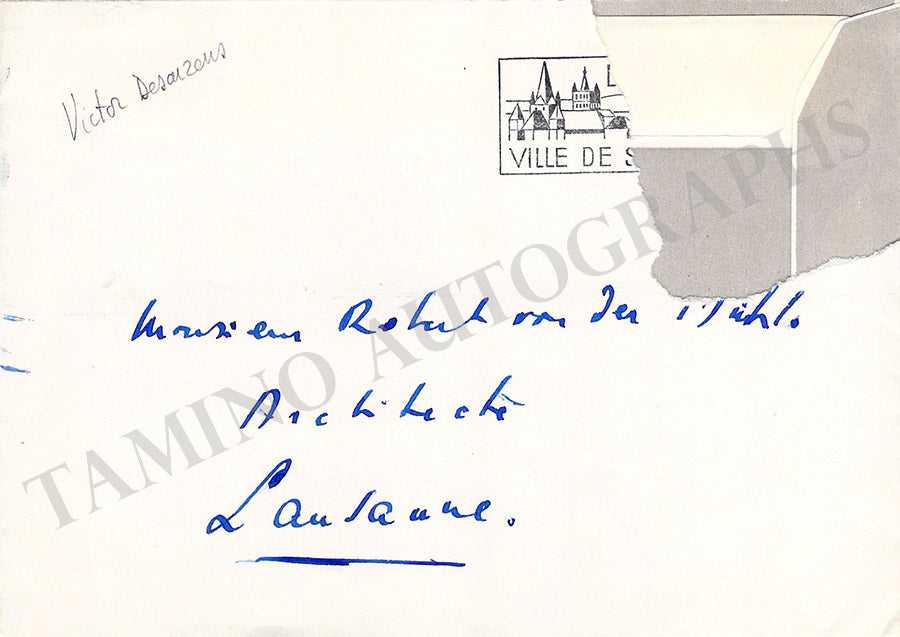 Victor Desarzens
L
VILLE DE S
Monsieur Robert von der Mühl.
Architecte
Lausanne.
TAMINO AUTOGRAPHS